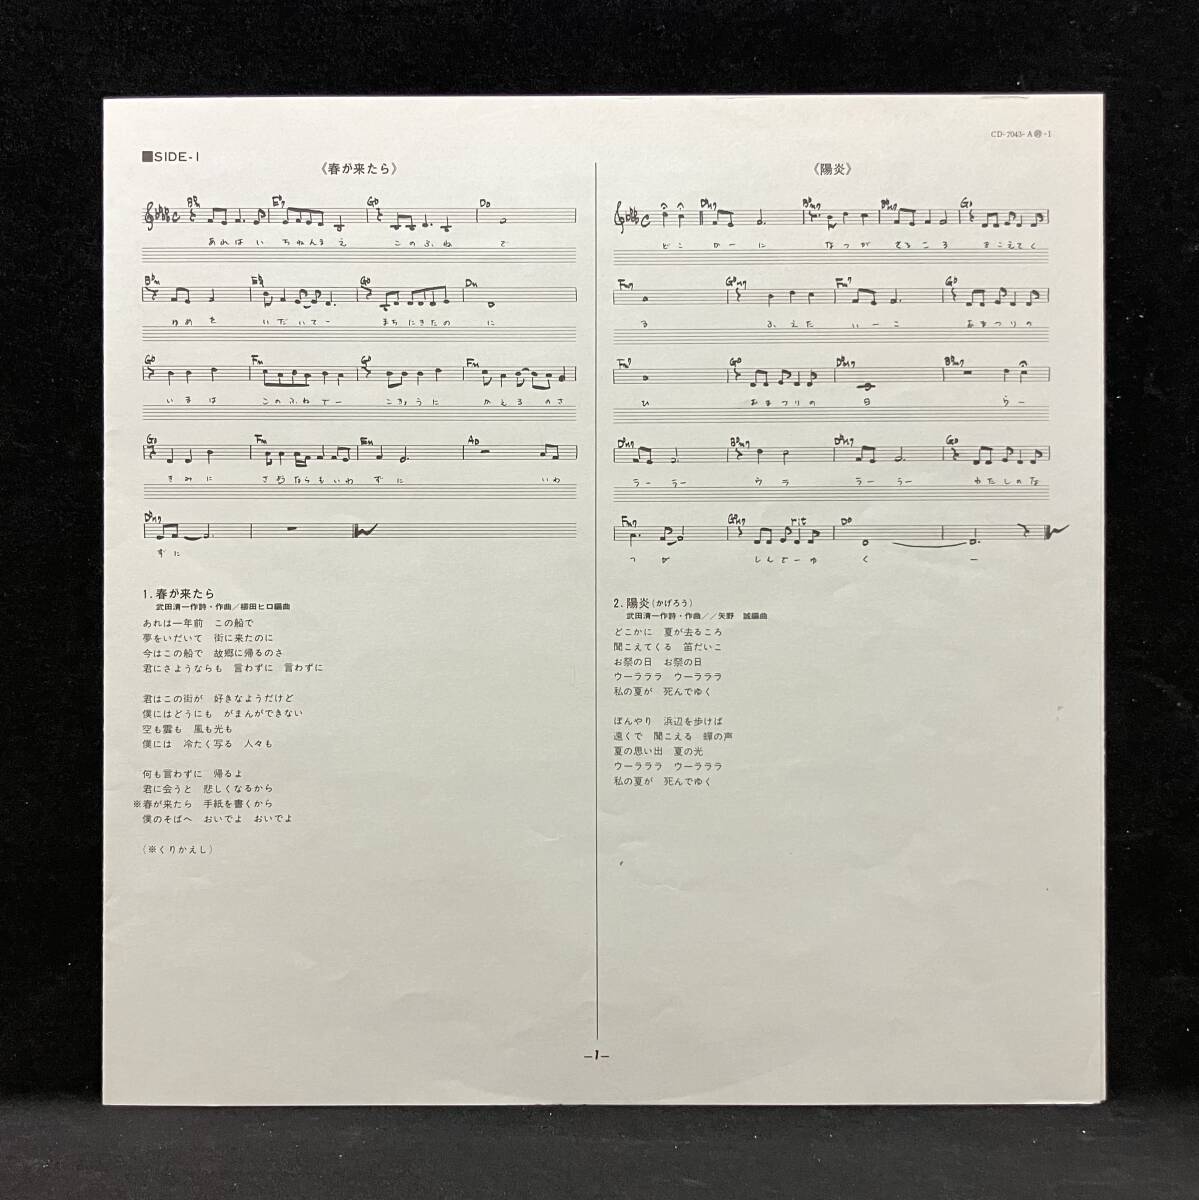 CD-7043-A㊞-1
■SIDE-1
《春が来たら》
あれは いちねんまえ このふね で
ゆめを いだいてー まちにきたの に
いまは このふねでー こきょうに かえる のさ
きみに さようならもいわ ずに いわ
ずに
1. 春が来たら
武田清一作詩・作曲/柳田ヒロ編曲
あれは一年前 この船で
夢をいだいて 街に来たのに
今はこの船で 故郷に帰るのさ
君にさようならも 言わずに 言わずに
君はこの街が 好きなようだけど
僕にはどうにも がまんができない
空も雲も 風も光も
僕には 冷たく写る 人々も
何も言わずに 帰るよ
君に会うと 悲しくなるから
※春が来たら 手紙を書くから
僕のそばへ おいでよ おいでよ
(※くりかえし)
《陽炎》
どこ かーに なつが さるころ きこえてく
る ふえた いーこ おまつりの
ひ おまつりの 日 らー
ラーラー ウラ ラーラー わたしのな
rit
つが しんでーゆ く ー
2. 陽炎(かげろう)
武田清一作詩・作曲//矢野 誠編曲
どこかに 夏が去るころ
聞こえてくる 笛だいこ
お祭の日 お祭の日
ウーラララ ウーラララ
私の夏が 死んでゆく
ぼんやり 浜辺を歩けば
遠くで 聞こえる 蟬の声
夏の思い出 夏の光
ウーラララ ウーラララ
私の夏が 死んでゆく
—1—